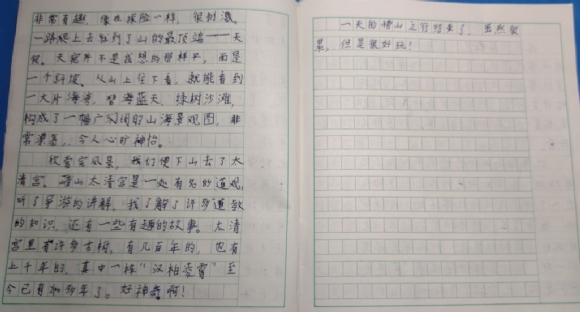 非常有趣,像在探险一样,很刺激。
一路爬上去就到了山的最顶端——天
窗。天窗并不是我想的那样平,而是
一个斜坡。从山上往下看,就能看到
一大片海湾,碧海蓝天,绿树沙滩,
构成了一幅广阔的山海景观图,非
常美景,令人心旷神怡。
欣赏完风景,我们便下山去了太
清宫。崂山太清宫是一处有名的道观,
听了导游的讲解,我了解了许多道教
的知识,还有一些有趣的故事。太清
宫里有许多古树,有几百年的,也有
上千年的,其中一棵“汉柏凌霄”至
今已有年了。好神奇啊!
一天的崂山之行结束了,虽然很
累,但是很好玩!